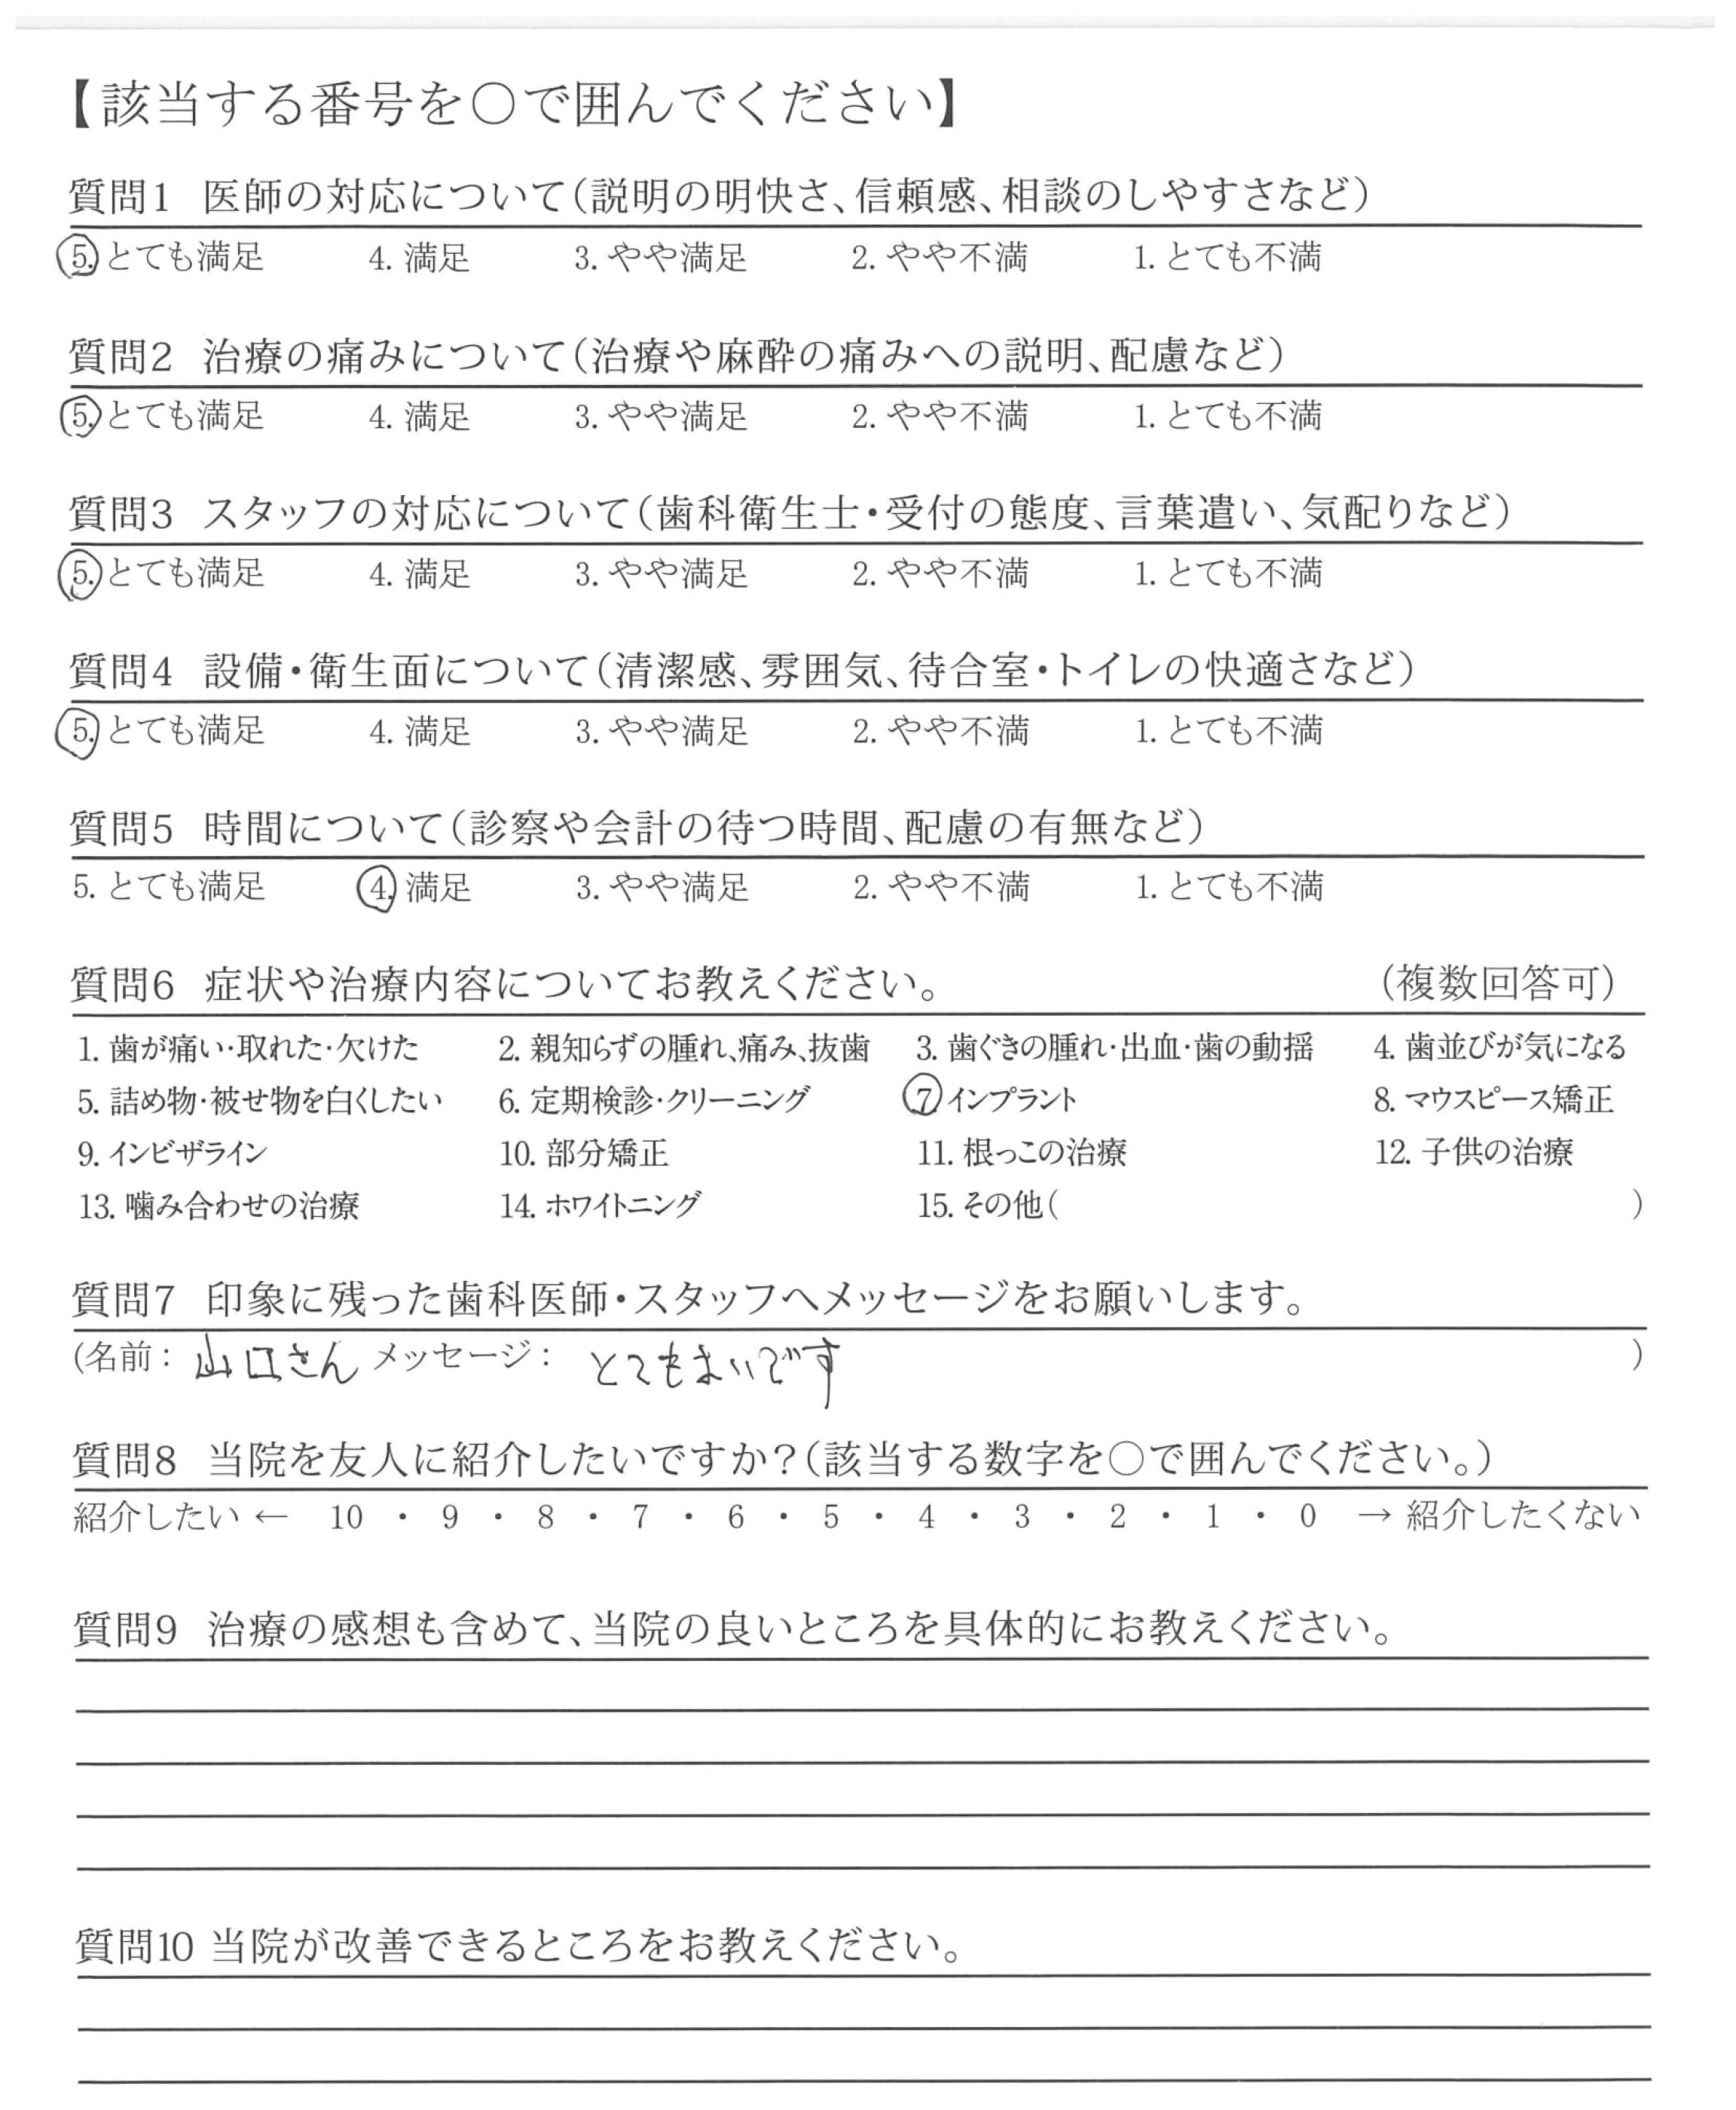 【該当する番号を○で囲んでください】
質問1 医師の対応について(説明の明快さ、信頼感、相談のしやすさなど)
5. とても満足 4. 満足 3. やや満足 2. やや不満 1. とても不満
質問2 治療の痛みについて(治療や麻酔の痛みへの説明、配慮など)
5. とても満足 4. 満足 3. やや満足 2. やや不満 1. とても不満
質問3 スタッフの対応について(歯科衛生士・受付の態度、言葉遣い、気配りなど)
5. とても満足 4. 満足 3. やや満足 2. やや不満 1. とても不満
質問4 設備・衛生面について(清潔感、雰囲気、待合室・トイレの快適さなど)
5. とても満足 4. 満足 3. やや満足 2. やや不満 1. とても不満
質問5 時間について(診察や会計の待つ時間、配慮の有無など)
5. とても満足 4. 満足 3. やや満足 2. やや不満 1. とても不満
質問6 症状や治療内容についてお教えください。 (複数回答可)
1. 歯が痛い・取れた・欠けた 2. 親知らずの腫れ、痛み、抜歯 3. 歯ぐきの腫れ・出血・歯の動揺 4. 歯並びが気になる
5. 詰め物・被せ物を白くしたい 6. 定期検診・クリーニング 7. インプラント 8. マウスピース矯正
9. インビザライン 10. 部分矯正 11. 根っこの治療 12. 子供の治療
13. 噛み合わせの治療 14. ホワイトニング 15. その他( )
質問7 印象に残った歯科医師・スタッフへメッセージをお願いします。
(名前: 山口さん メッセージ: とても)
質問8 当院を友人に紹介したいですか?(該当する数字を○で囲んでください。)
紹介したい ← 10 ・ 9 ・ 8 ・ 7 ・ 6 ・ 5 ・ 4 ・ 3 ・ 2 ・ 1 ・ 0 → 紹介したくない
質問9 治療の感想も含めて、当院の良いところを具体的にお教えください。
質問10 当院が改善できるところをお教えください。